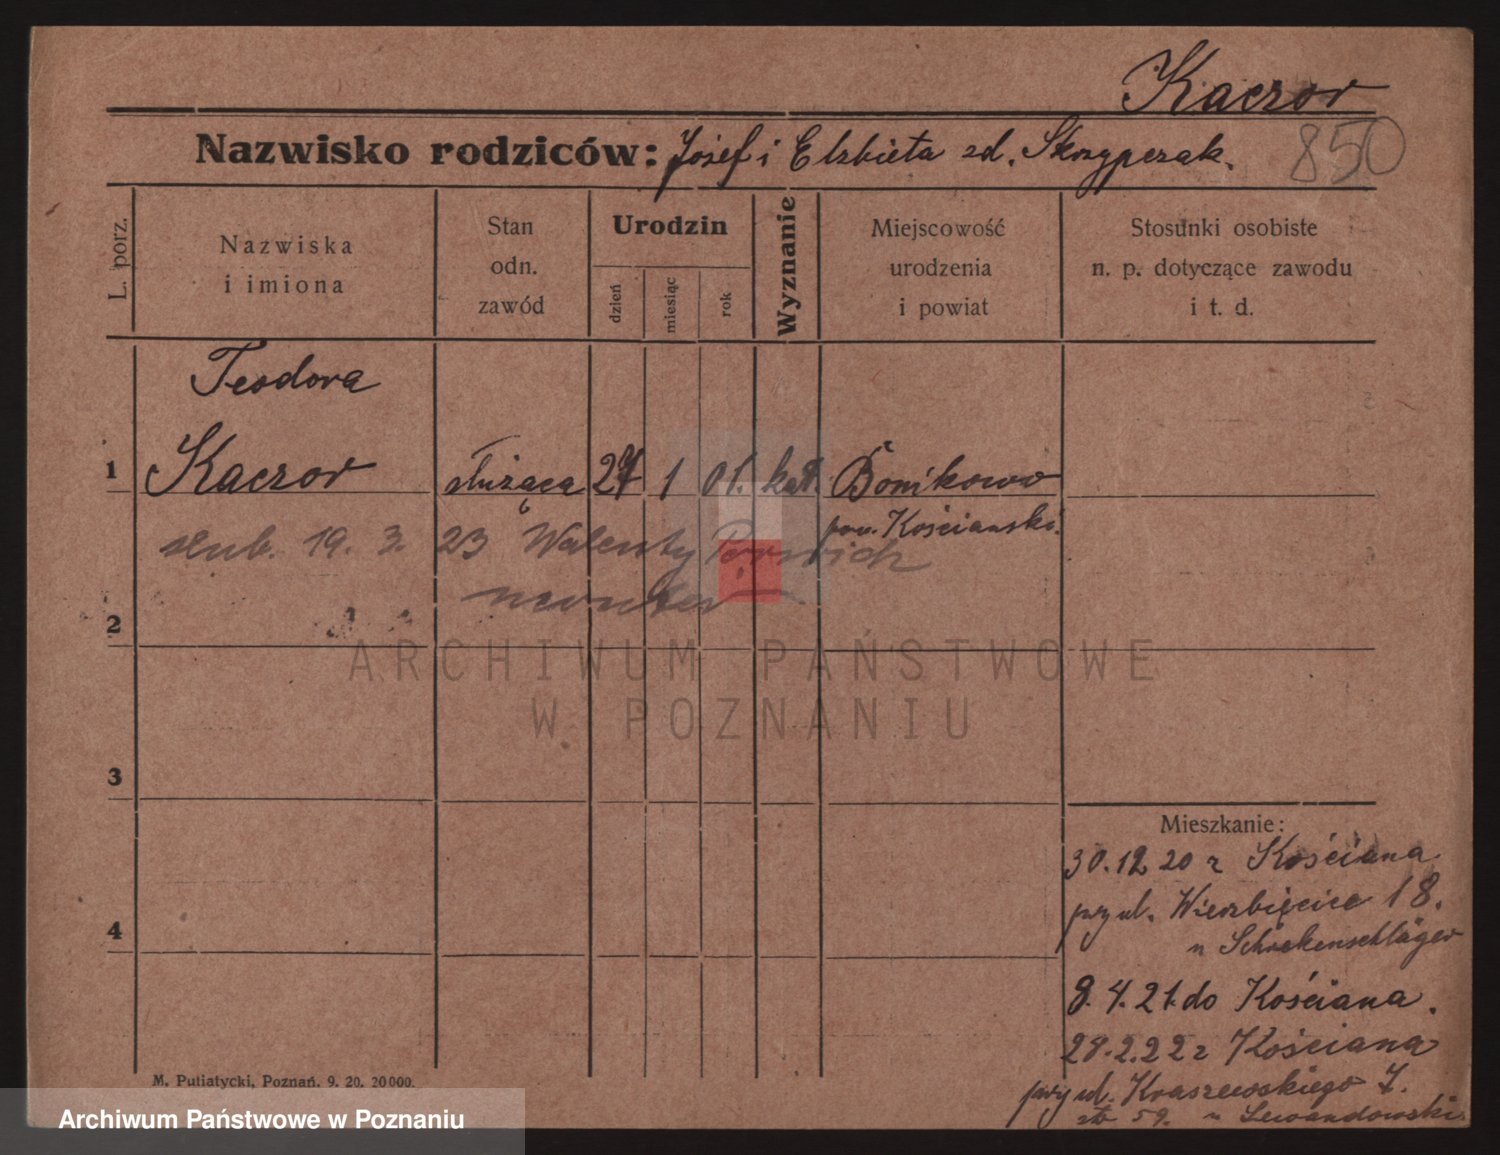 Kaczor
Nazwisko rodziców: Józef i Elżbieta zd. Skrzypczak.
850
L. porz.
Nazwiska
i imiona
Stan
odn.
zawód
Urodzin
dzień
miesiąc
rok
Wyznanie
Miejscowość
urodzenia
i powiat
Stosunki osobiste
n. p. dotyczące zawodu
i t. d.
Teodora
1 Kaczor służąca 27 1 01. kat. Bonikowo
pow. Kościański.
ślub. 19. 3. 23 Walenty
monter
2
3
4
ARCHIWUM PAŃSTWOWE
W POZNANIU
Mieszkanie:
30.12 20 z Kościana
przy ul. Wierzbięcice 18.
u Schrekenschläger
8. 4. 21. do Kościana.
28.2.22 z Kościana
przy ul. Kraszewskiego 7.
59. u Lewandowski
M. Putiatycki, Poznań. 9. 20. 20000.
Archiwum Państwowe w Poznaniu